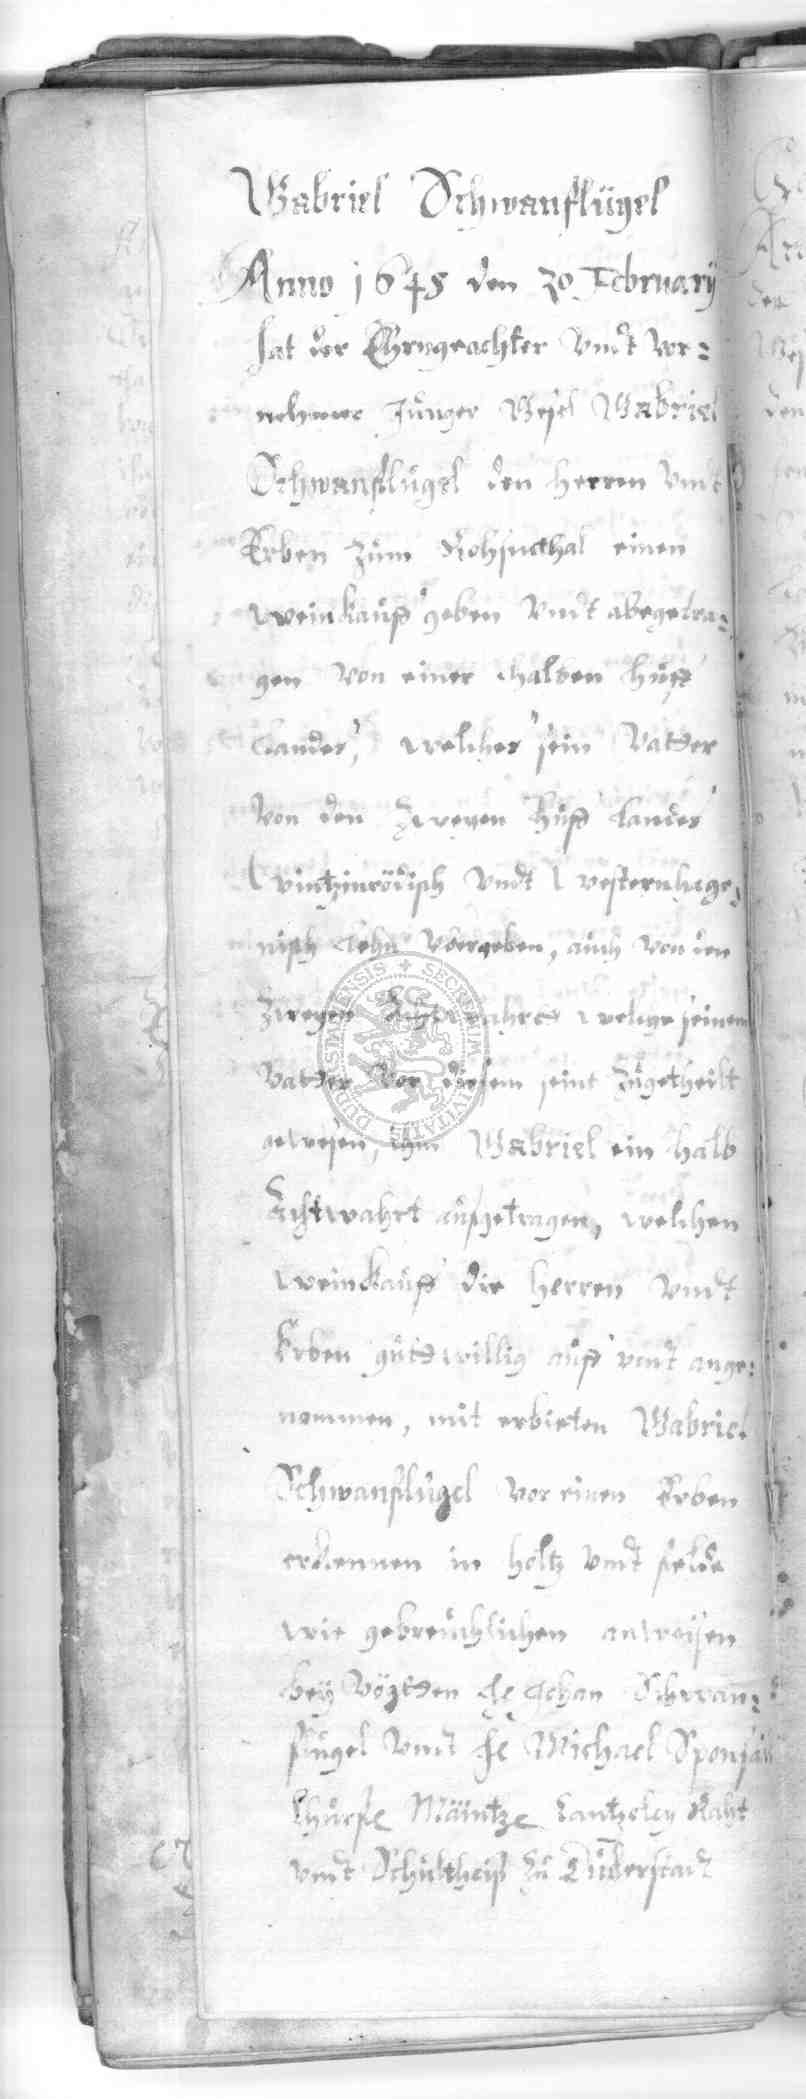 Gabriel Schwanflügel
Anno 1648 den 20 February
hat der Ehrngeachter Vndt vor:
nehmer Junger Gesel Gabriel
Schwanflügel den Herren Vndt
Erben zum einen
weinkauff geben Vndt abegetra:
gen Von einer halben huff
Landes, welches sein Vatter
Von den Zweyen huff Landes
wintzinrödisch Vndt westernhage:
nisch Lehn vbergeben, auch von den
Zweyen Achtwahrtt welche seinem
Vatter Vor diesem seint Zugetheilt
gewesen, ihm Gabriel ein halb
Achtwahrt auffgetragen, welchen
weinkauff die Herren Vndt
Erben guttwillig auff vnndt ange:
nommen, mit erbieten Gabriel
Schwanflügel vor einen Erben
erkennen in holtz Vndt felde
wie gebreuchlichen anweisen
bey Vögtten H Johan Schwan:
flügel Vndt H Michael
Churf Mäintze Cantzeley Raht
vndt Schultheiß Zu Duderstadt
SECRETUM CIVITATIS DUDERSTATENSIS